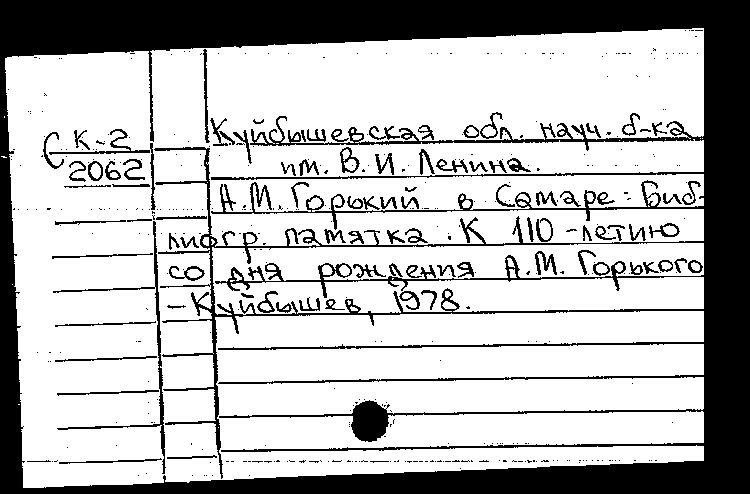 С К-2
2062
Куйбышевская обл. науч. б-ка
им. В. И. Ленина.
А.М. Горький в Самаре: Биб-
лиогр. памятка. К 110-летию
со дня рождения А.М. Горького
- Куйбышев, 1978.